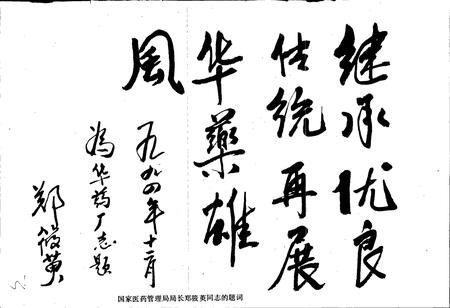 继承优良
传统再展
华藥雄
風
一九九四年十二月
為华药厂志题
郑筱萸
国家医药管理局局长郑筱英同志的题词